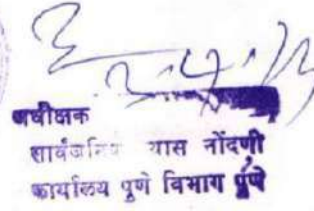 अधीक्षक
सार्वजनिक न्यास नोंदणी
कार्यालय पुणे विभाग पुणे